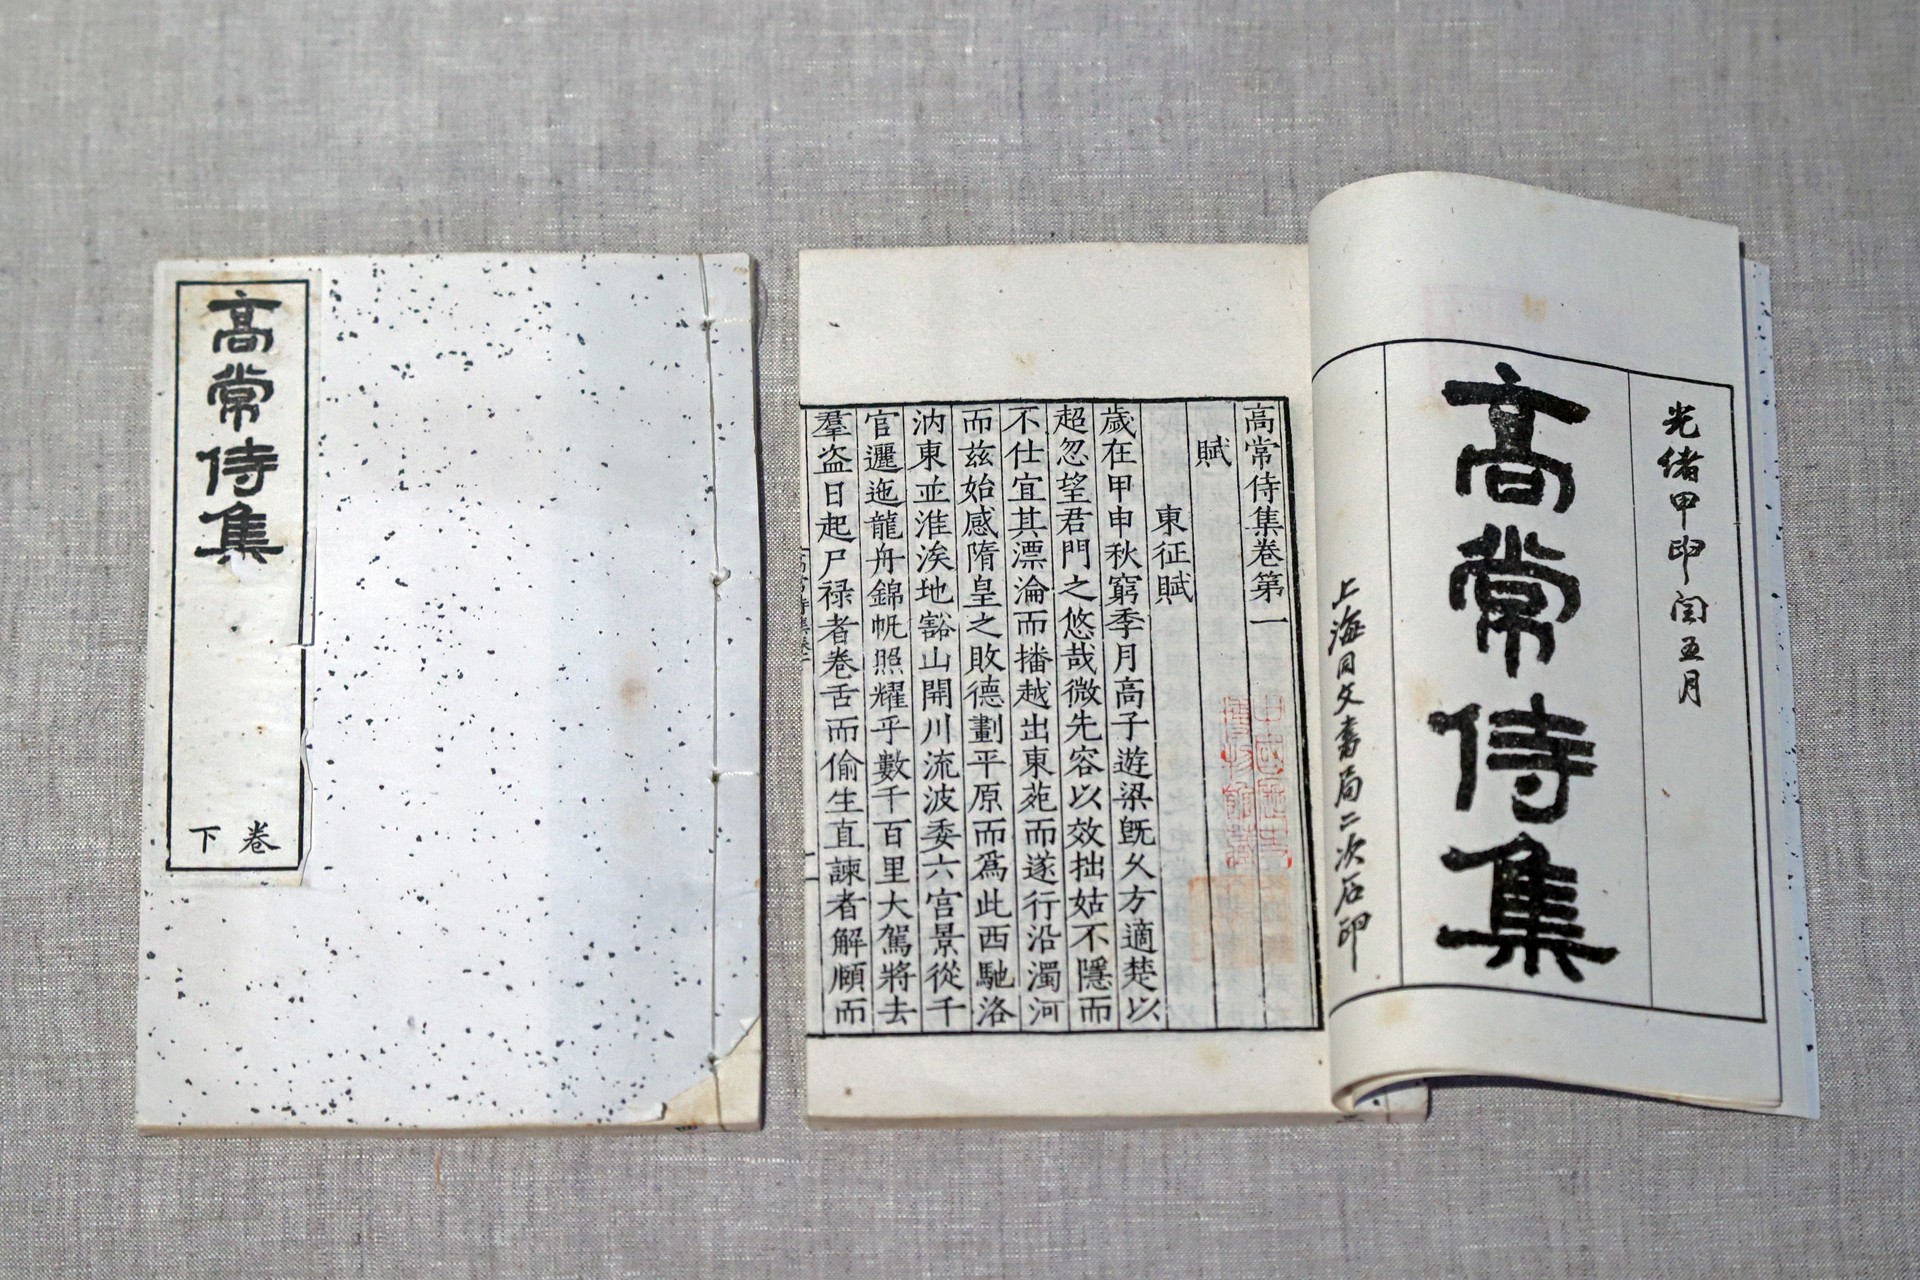 高常侍集
卷下
光緒甲申閏五月
高常侍集
上海同文書局二次石印
高常侍集卷第一
賦
東征賦
歲在甲申秋窮季月高子遊梁旣久方適楚以
超忽望君門之悠哉微先容以效拙姑不隱而
不仕宜其漂淪而播越出東苑而遂行沿濁河
而兹始感隋皇之敗德劃平原而爲此西馳洛
汭東並淮涘地豁山開川流波委六宮景從千
官邐迤龍舟錦帆照耀乎數千百里大駕將去
羣盗日起尸禄者卷舌而偷生直諫者解頤而